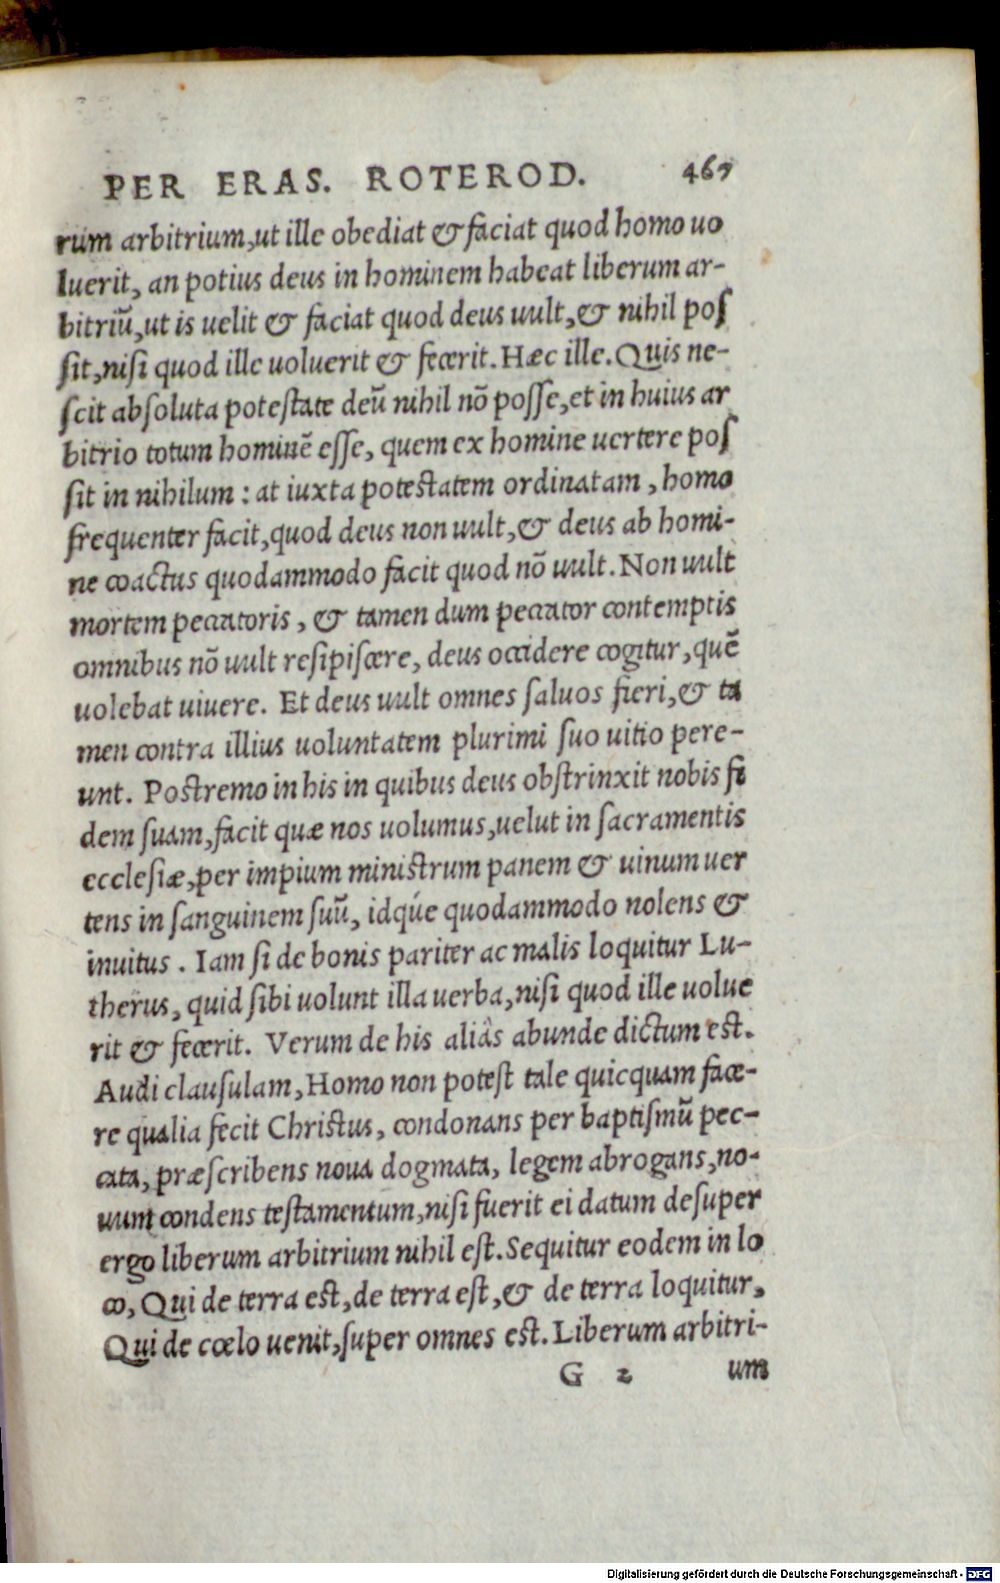 PER ERAS. ROTEROD. 467
rum arbitrium, ut ille obediat & faciat quod homo uo
luerit, an potius deus in hominem habeat liberum ar-
bitriū, ut is uelit & faciat quod deus uult, & nihil poſ
ſit, niſi quod ille uoluerit & fecerit. Hæc ille. Quis ne-
ſcit abſoluta poteſtate deū nihil nō poſſe, et in huius ar
bitrio totum hominē eſſe, quem ex homine uertere poſ
ſit in nihilum : at iuxta poteſtatem ordinatam, homo
frequenter facit, quod deus non uult, & deus ab homi-
ne coactus quodammodo facit quod nō uult. Non uult
mortem peccatoris, & tamen dum peccator contemptis
omnibus nō uult reſipiſcere, deus occidere cogitur, quē
uolebat uiuere. Et deus uult omnes ſaluos fieri, & ta
men contra illius uoluntatem plurimi ſuo uitio pere-
unt. Poſtremo in his in quibus deus obſtrinxit nobis fi
dem ſuam, facit quæ nos uolumus, uelut in ſacramentis
eccleſiæ, per impium miniſtrum panem & uinum uer
tens in ſanguinem ſuū, idq́ue quodammodo nolens &
inuitus. Iam ſi de bonis pariter ac malis loquitur Lu-
therus, quid ſibi uolunt illa uerba, niſi quod ille uolue
rit & fecerit. Verum de his aliâs abunde dictum eſt.
Audi clauſulam, Homo non poteſt tale quicquam face-
re qualia fecit Chriſtus, condonans per baptiſmū pec-
cata, præſcribens noua dogmata, legem abrogans, no-
uum condens teſtamentum, niſi fuerit ei datum deſuper
ergo liberum arbitrium nihil eſt. Sequitur eodem in lo
co, Qui de terra eſt, de terra eſt, & de terra loquitur,
Qui de cœlo uenit, ſuper omnes eſt. Liberum arbitri-
G 2 um
Digitalisierung gefördert durch die Deutsche Forschungsgemeinschaft - DFG